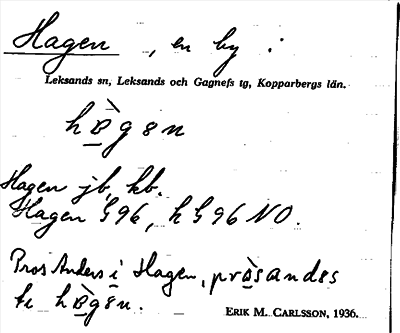 Hagen, en by i
Leksands sn, Leksands och Gagnefs tg, Kopparbergs län.
hàgen
Hagen jb, kb.
Hagen G96, h G96 NO.
Pros Anders i Hagen, pròsandes
hàgen.
ERIK M. CARLSSON, 1936.